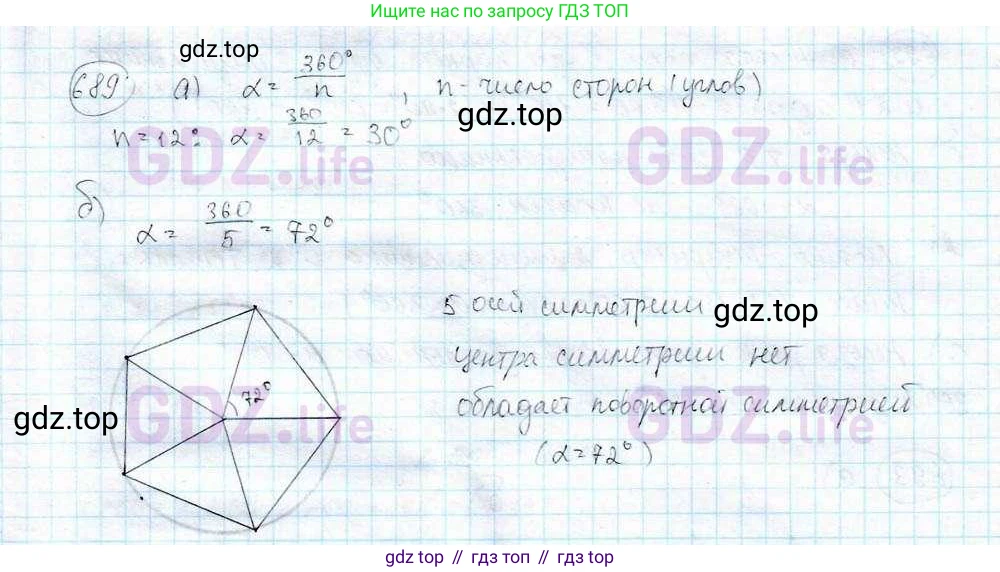 Ищите нас по запросу ГДЗ ТОП
gdz.top
689 а) α = 360°/n , n - число сторон (углов)
gdz.top
n = 12: α = 360/12 = 30°
GDZ.life GDZ.life
б)
α = 360/5 = 72°
5 осей симметрии
gdz.top
центра симметрии нет
72°
обладает поворотной симметрией
gdz.top
GDZ.life GDZ.life
(α = 72°)
gdz.top // гдз топ // gdz.top